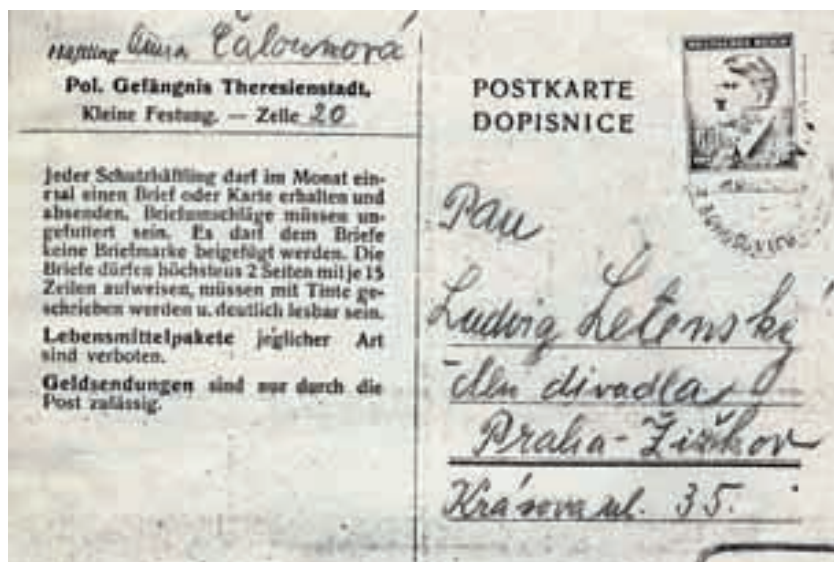 Häftling Anna Čaloumová
Pol. Gefängnis Theresienstadt,
Kleine Festung. — Zelle 20
Jeder Schutzhäftling darf im Monat ein-
mal einen Brief oder Karte erhalten und
absenden. Briefumschläge müssen un-
gefüttert sein. Es darf dem Briefe
keine Briefmarke beigefügt werden. Die
Briefe dürfen höchstens 2 Seiten mit je 15
Zeilen aufweisen, müssen mit Tinte ge-
schrieben werden u. deutlich lesbar sein.
Lebensmittelpakete jeglicher Art
sind verboten.
Geldsendungen sind nur durch die
Post zulässig.
POSTKARTE
DOPISNICE
DEUTSCHES REICH
Pan
Ludvig Letenský
člen divadla
Praha-Žižkov
Krásova ul. 35.